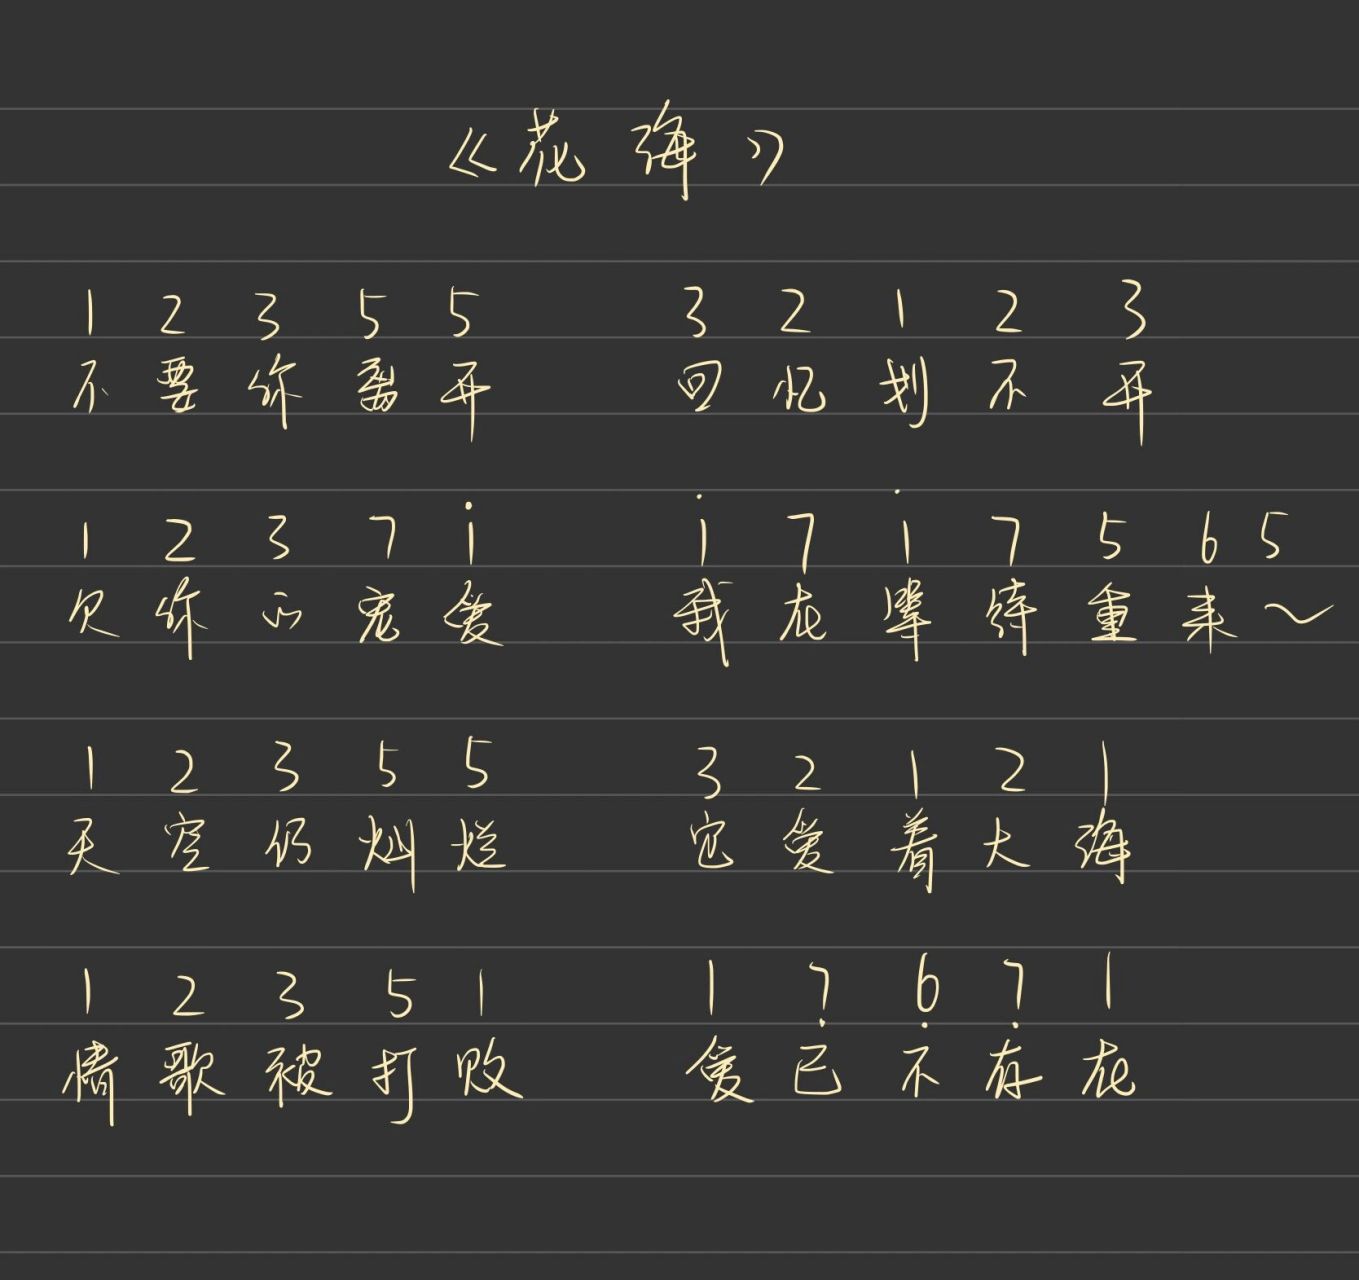 《花海》
1 2 3 5 5 3 2 1 2 3
不要你离开 回忆划不开
1 2 3 7 i̇ i̇ 7 i̇ 7 5 6 5
欠你的宠爱 我在等待重来～
1 2 3 5 5 3 2 1 2 1
天空仍灿烂 它爱着大海
1 2 3 5 1 1 7̣ 6̣ 7̣ 1
情歌被打败 爱已不存在